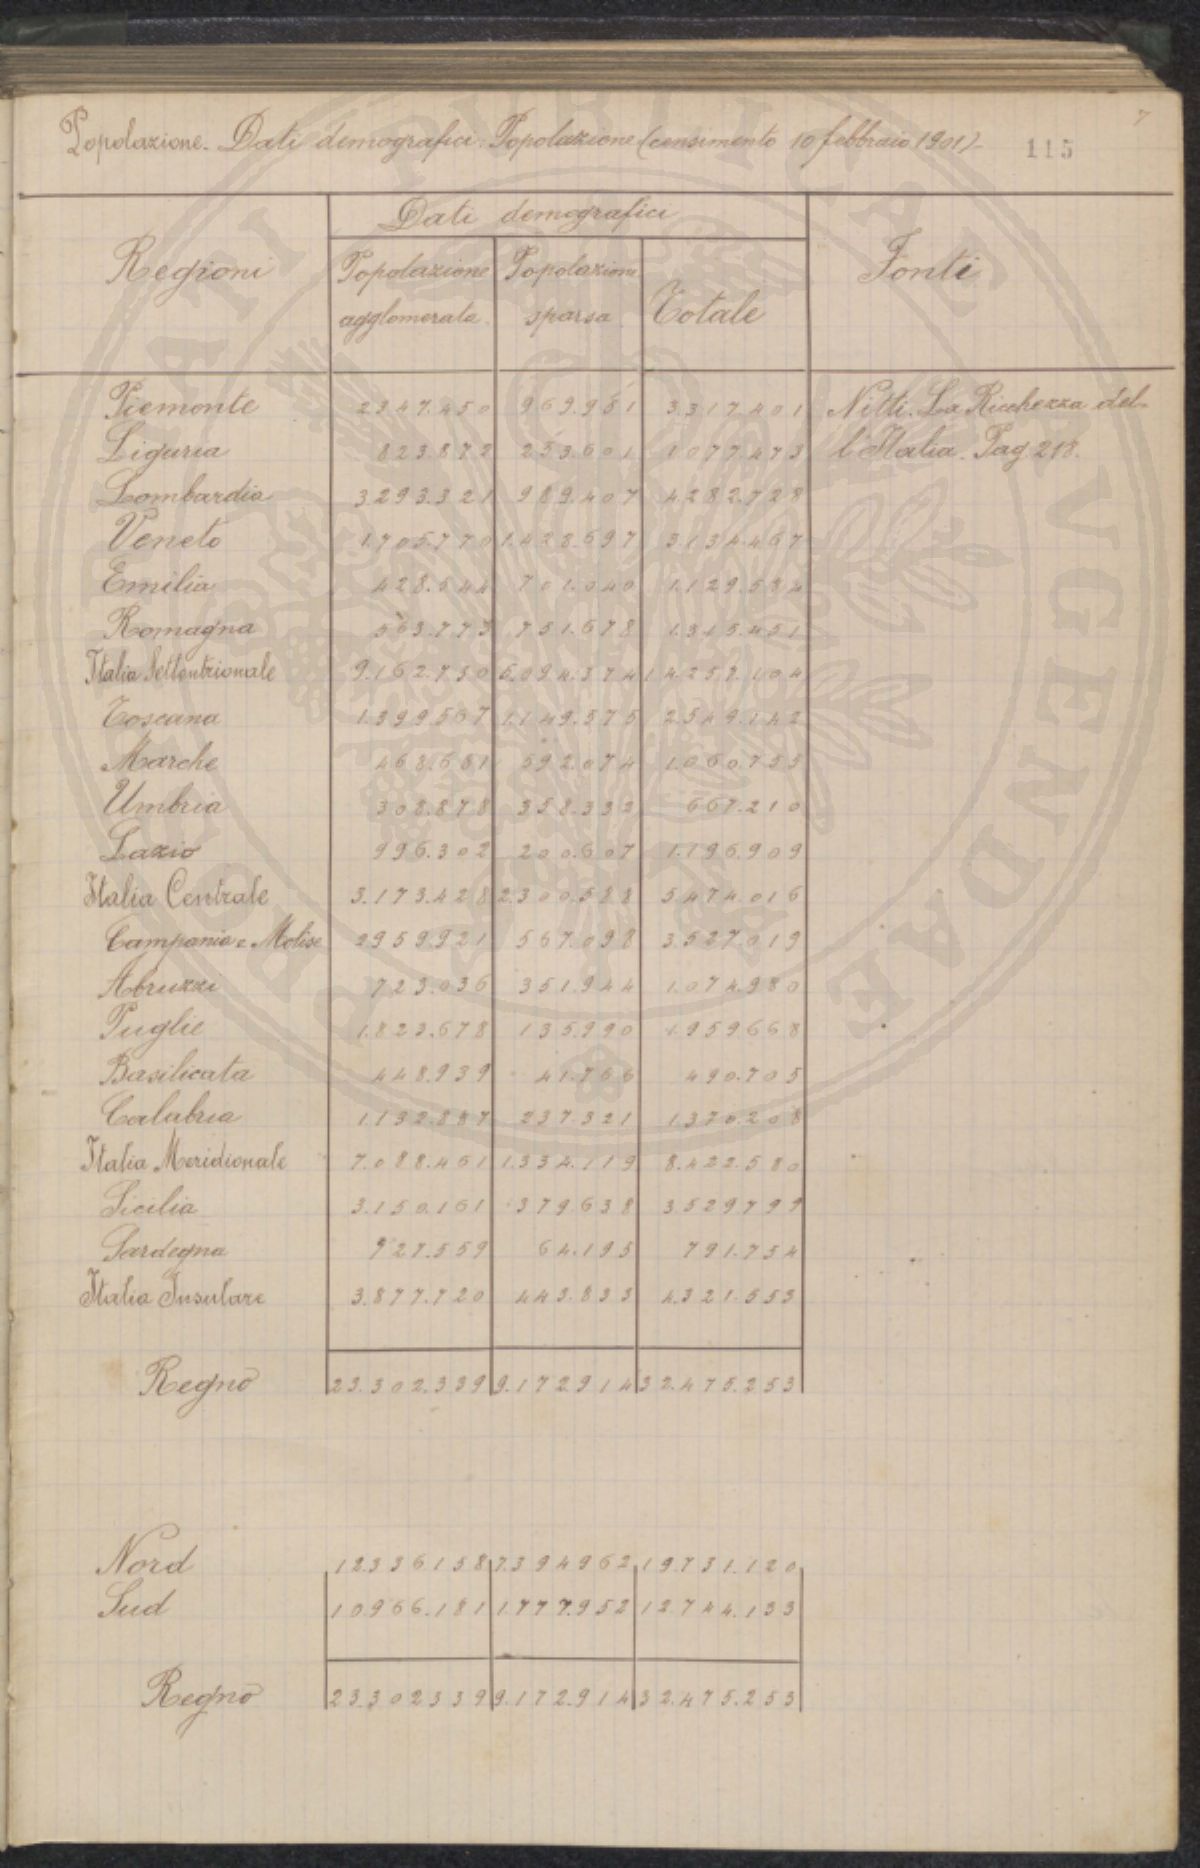 7
Popolazione. Dati demografici. Popolazione (censimento 10 febbraio 1901)- 115
Dati demografici
Regioni Popolazione agglomerata Popolazione sparsa Totale Fonti
Piemonte 2347.450 969.951 3.317.401 Nitti. La Ricchezza del-
Liguria 823.872 253.601 1077.473 l'Italia. Pag 218.
Lombardia 3293.321 989.407 4.282.728
Veneto 1.705.770 1.428.697 3.134.467
Emilia 428.544 701.040 1.129.584
Romagna 563.773 751.678 1.315.451
Italia Settentrionale 9.162.730 5.094.374 14257.104
Toscana 1.399.567 1.149.575 2.549.142
Marche 468.681 592.074 1.060.755
Umbria 308.878 358.332 667.210
Lazio 996.302 200.607 1.196.909
Italia Centrale 3.173.428 2.300.588 5474.016
Campania e Molise 2959.921 567.098 3.527.019
Abruzzi 723.036 351.944 1.074.980
Puglie 1.823.678 135.990 1.959668
Basilicata 448.939 41.766 490.705
Calabria 1.132.887 237.321 1.370.208
Italia Meridionale 7.088.461 1.334.119 8.422.580
Sicilia 3.150.161 379.638 3.529799
Sardegna 727.559 64.195 791.754
Italia Insulare 3.877.720 443.833 4.321.553
Regno 23.302.339 9.172914 32.475.253
Nord 12.336158 7.394962 19.731.120
Sud 10966.181 1.777.952 12.744.133
Regno 23.302339 9.172.914 32.475.253
PATRVM COGITATI PVBLICAE